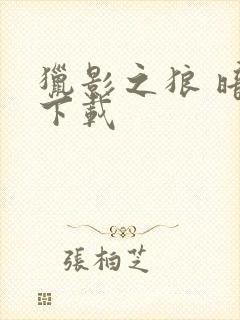 獵影之狼 暗
下載
張柏芝